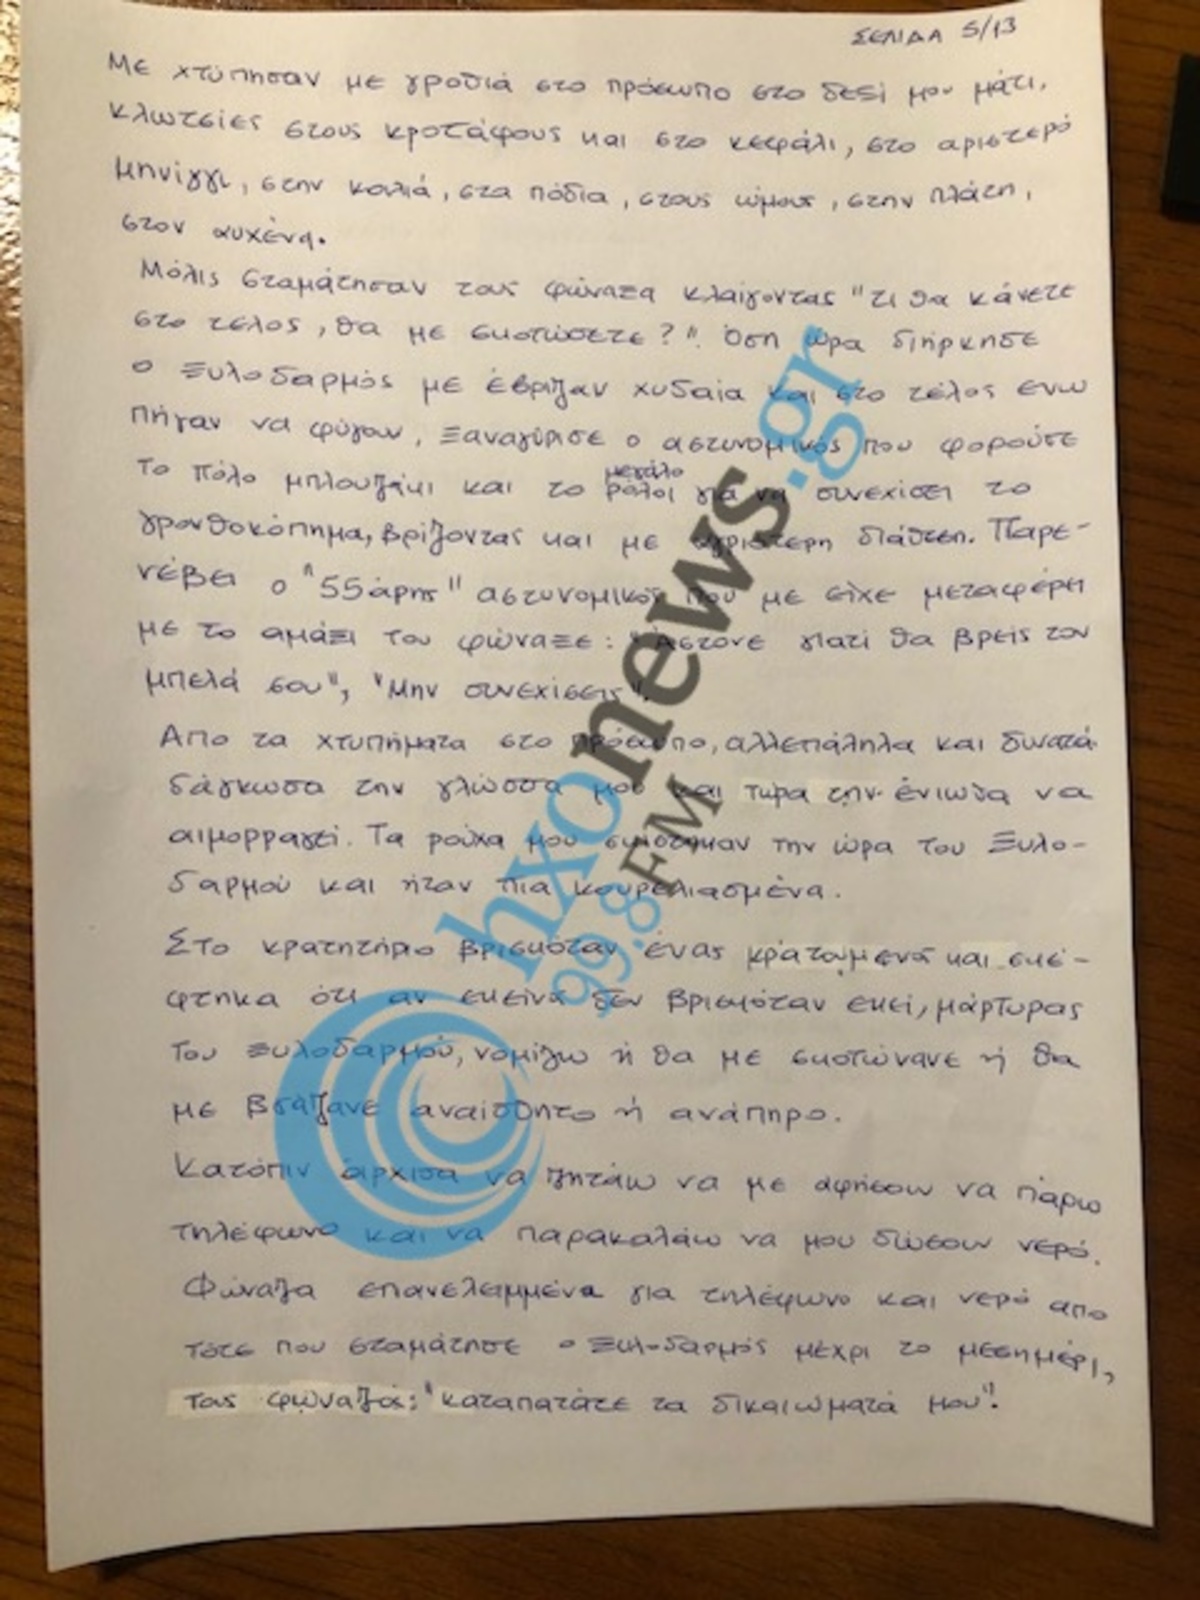 ΣΕΛΙΔΑ 5/13
Με χτύπησαν με γροθιά στο πρόσωπο στο δεξί μου μάτι,
κλωτσιές στους κροτάφους και στο κεφάλι, στο αριστερό
μηνίγγι, στην κοιλιά, στα πόδια, στους ώμους, στην πλάτη,
στον αυχένα.
Μόλις σταμάτησαν τους φώναξα κλαίγοντας "τι θα κάνετε
στο τέλος, θα με σκοτώσετε?". Όση ώρα διήρκησε
ο ξυλοδαρμός με έβριζαν χυδαία και στο τέλος ενω
πήγαν να φύγουν, ξαναγύρισε ο αστυνομικός που φορούσε
το πόλο μπλουζάκι και το μεγάλο ρόλοι για να συνεχίσει το
γρονθοκόπημα, βρίζοντας και με αγριότερη διάθεση. Παρε-
νέβει ο "55άρης" αστυνομικός που με είχε μεταφέρει
με το αμάξι του φώναξε: "Άστονε γιατί θα βρεις τον
μπελά σου", "Μην συνεχίσεις".
Απο τα χτυπήματα στο πρόσωπο, αλλεπάληλα και δυνατά
δάγκωσα την γλώσσα μου και τώρα την ένιωθα να
αιμορραγεί. Τα ρούχα μου σκίστηκαν την ώρα του ξυλο-
δαρμού και ήταν πια κουρελιασμένα.
Στο κρατητήριο βρισκόταν ένας κρατούμενος και σκέ-
φτηκα ότι αν εκείνος δεν βρισκόταν εκεί, μάρτυρας
του ξυλοδαρμού, νομίζω ή θα με σκοτώνανε ή θα
με βγάζανε αναίσθητο ή ανάπηρο.
Κατόπιν άρχισα να ζητάω να με αφήσουν να πάρω
τηλέφωνο και να παρακαλάω να μου δώσουν νερό.
Φώναζα επανελειμμένα για τηλέφωνο και νερό απο
τότε που σταμάτησε ο ξυλοδαρμός μέχρι το μεσημέρι,
τους φώναζα: "καταπατάτε τα δικαιώματά μου".
hxonews.gr
99.8 FM